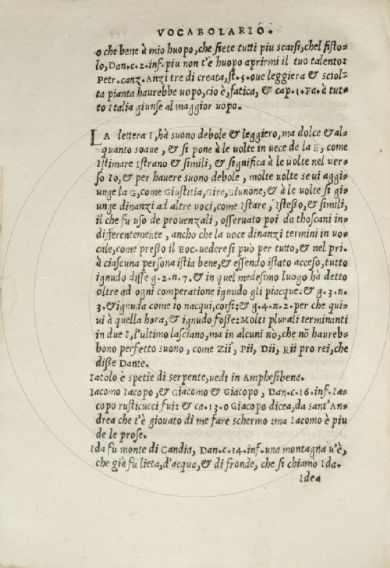 VOCABOLARIO.
o che bene à mio huopo, che siete tutti piu scarsi, chel fisto-
lo, Dan. c. 2. inf. piu non t'è huopo aprirmi il tuo talento:
Petr. canz. Anzi tre di creata, st. 5. oue leggiera & sciol-
ta pianta haurebbe uopo, cio è, fatica, & cap. 1. Fa. à tut-
to Italia giunse al maggior uopo.
LA lettera I, hà suono debole & leggiero, ma dolce & al-
quanto soaue, & si pone à le volte in uece de la E, come
Istimare Istrano & simili, & significa à le volte nel ver-
so Io, & per hauere suono debole, molte volte se ui aggi-
unge la G, come Giustitia, Gire, Giunone, & à le volte si gi-
unge dinanzi ad altre voci, come Istare, Istesso, & simili,
il che fu uso de prouenzali, osseruato poi da thoscani in-
differentemente, ancho che la uoce dinanzi termini in vo-
cale, come presso il Boc. vedere si può per tutto, & nel pri-
à ciascuna persona istia bene, & essendo istato acceso, tutto
ignudo disse g. 2. n. 7. & in quel medesimo luogo hà detto
oltre ad ogni comperatione ignudo gli piacque. & g. 3. n.
3. & ignuda come io nacqui, corsi: & g. 4. n. 2. per che qui-
ui à quella hora, & ignudo fosse: Molti plurali terminanti
in due I, l'ultimo lasciano, ma in alcuni nò, che nò haureb-
bono perfetto suono, come Zii, Pii, Dii, Rii pro rei, che
disse Dante.
Iacolo è spetie di serpente, uedi in Amphesibena.
Iacomo Iacopo, & Giacomo & Giacopo, Dan. c. 16. inf. Ia-
copo rusticucci fui: & ca. 13. o Giacopo dicea, da sant'An-
drea che t'è giouato di me fare schermo: ma Iacomo è piu
de le prose.
Ida fu monte di Candia, Dan. c. 14. inf. una montagna u'è,
che già fu lieta, d'acqua, & di fronde, che si chiamo Ida.
Idea